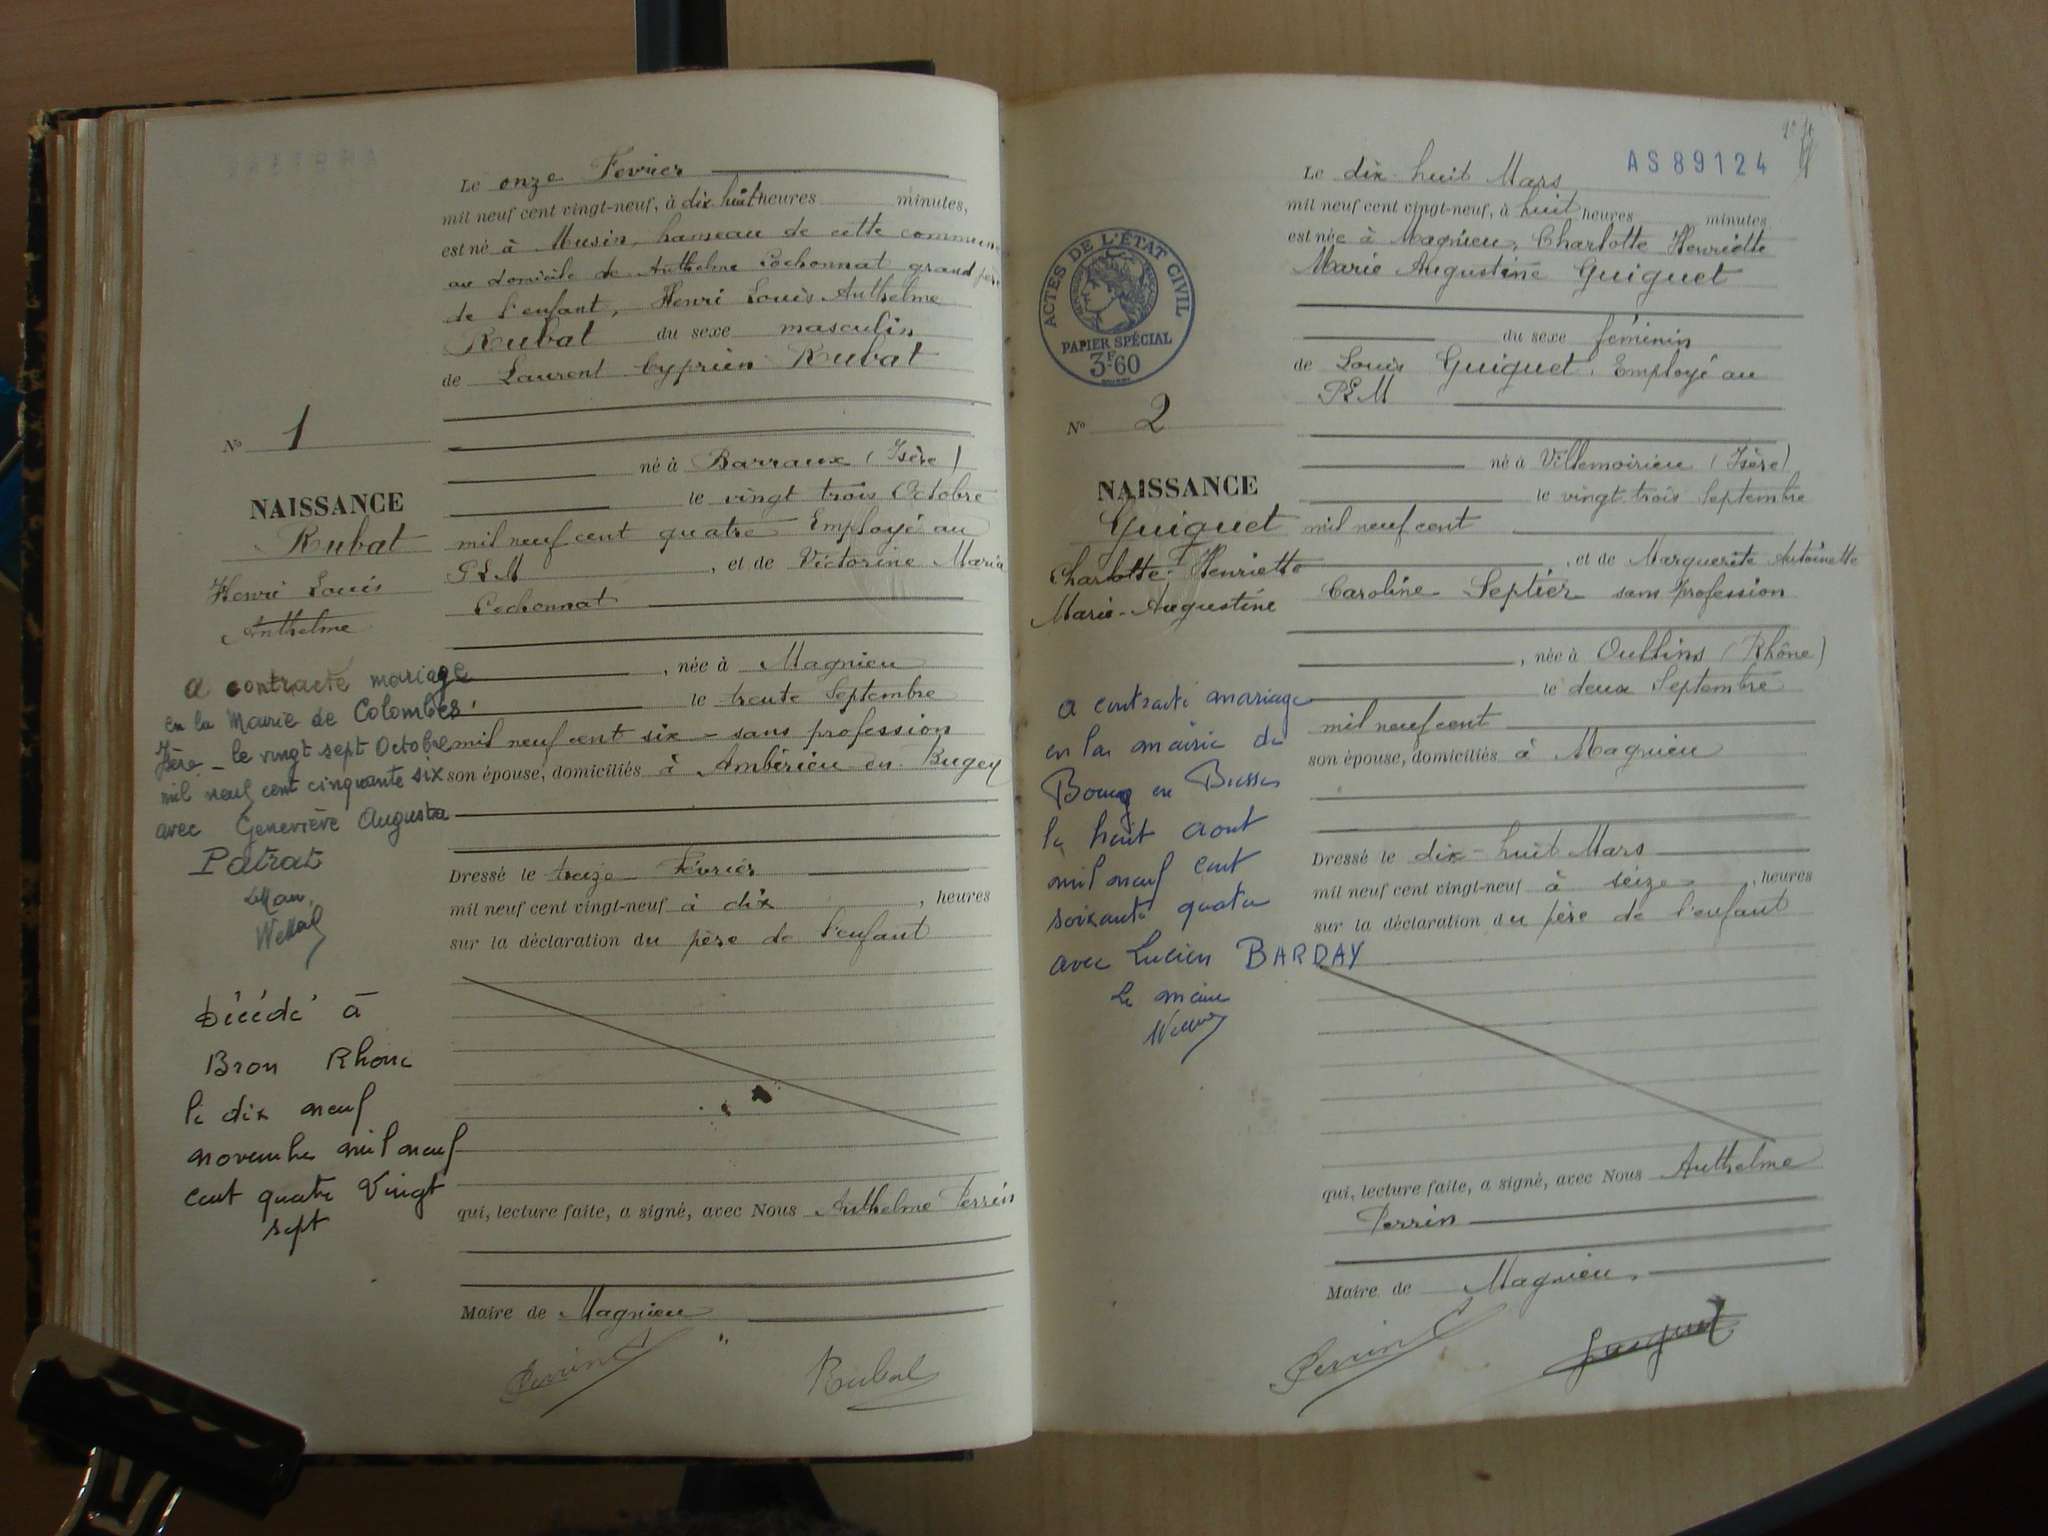 Le onze Fevrier
mil neuf cent vingt-neuf, à dix huit heures minutes,
est né à Musin, hameau de cette commune
au domicile de Anthelme Pochonnat grand père
de l'enfant, Henri Louis Anthelme
Rubat du sexe masculin
de Laurent Cyprien Rubat
No 1
né à Barraux (Isère)
le vingt trois Octobre
NAISSANCE
Rubat
Henri Louis
Anthelme
mil neuf cent quatre Employé au
PLM, et de Victorine Maria
Pochonnat
, née à Magnieu
le trente Septembre
mil neuf cent six - sans profession
son épouse, domiciliés à Ambérieu en Bugey
a contracté mariage
en la Mairie de Colombes
Isère - le vingt sept Octobre
mil neuf cent cinquante six
avec Geneviève Augusta
Patrat
Dressé le treize Février
mil neuf cent vingt-neuf à dix, heures
sur la déclaration du père de l'enfant
Décédé à
Bron Rhone
le dix neuf
novembre mil neuf
cent quatre Vingt
sept
qui, lecture faite, a signé, avec Nous Anthelme Perrin
Maire de Magnieu
Perrin
Rubat
AS89124
Le dix huit Mars
mil neuf cent vingt-neuf, à huit heures minutes
est née à Magnieu, Charlotte Henriette
Marie Augustine Guiguet
du sexe féminin
de Louis Guiguet, Employé au
PLM
ACTES DE L'ÉTAT CIVIL
PAPIER SPÉCIAL
3F60
No 2
né à Villemoirieu (Isère)
le vingt-trois Septembre
NAISSANCE
Guiguet
Charlotte Henriette
Marie-Augustine
mil neuf cent
, et de Marguerite Antoinette
Caroline Septier sans profession
, née à Oullins (Rhône)
le deux Septembre
mil neuf cent
son épouse, domiciliés à Magnieu
a contracté mariage
en la mairie de
Bourg en Bresse
le huit aout
mil neuf cent
soixante quatre
avec Lucien BARDAY
Le maire
Dressé le dix-huit Mars
mil neuf cent vingt-neuf à seize, heures
sur la déclaration du père de l'enfant
qui, lecture faite, a signé, avec Nous Anthelme
Perrin
Maire de Magnieu
Perrin
Guiguet